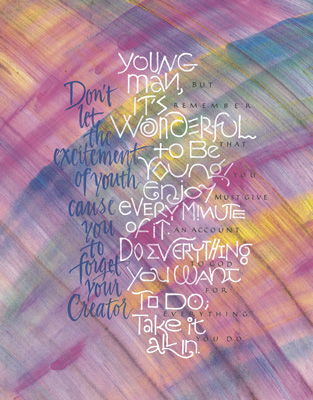 YOUNG
man,
it's
Wonderful
to Be
Young!
enjoy
EVERY MINUTE
OF IT.
DO EVERYTHING
YOU WANT
TO DO;
Take it
all in.
BUT
REMEMBER
THAT
YOU
MUST GIVE
AN ACCOUNT
TO GOD
FOR
EVERYTHING
YOU DO.
Don't
let
the
excitement
of youth
cause
you
to
forget
your
Creator